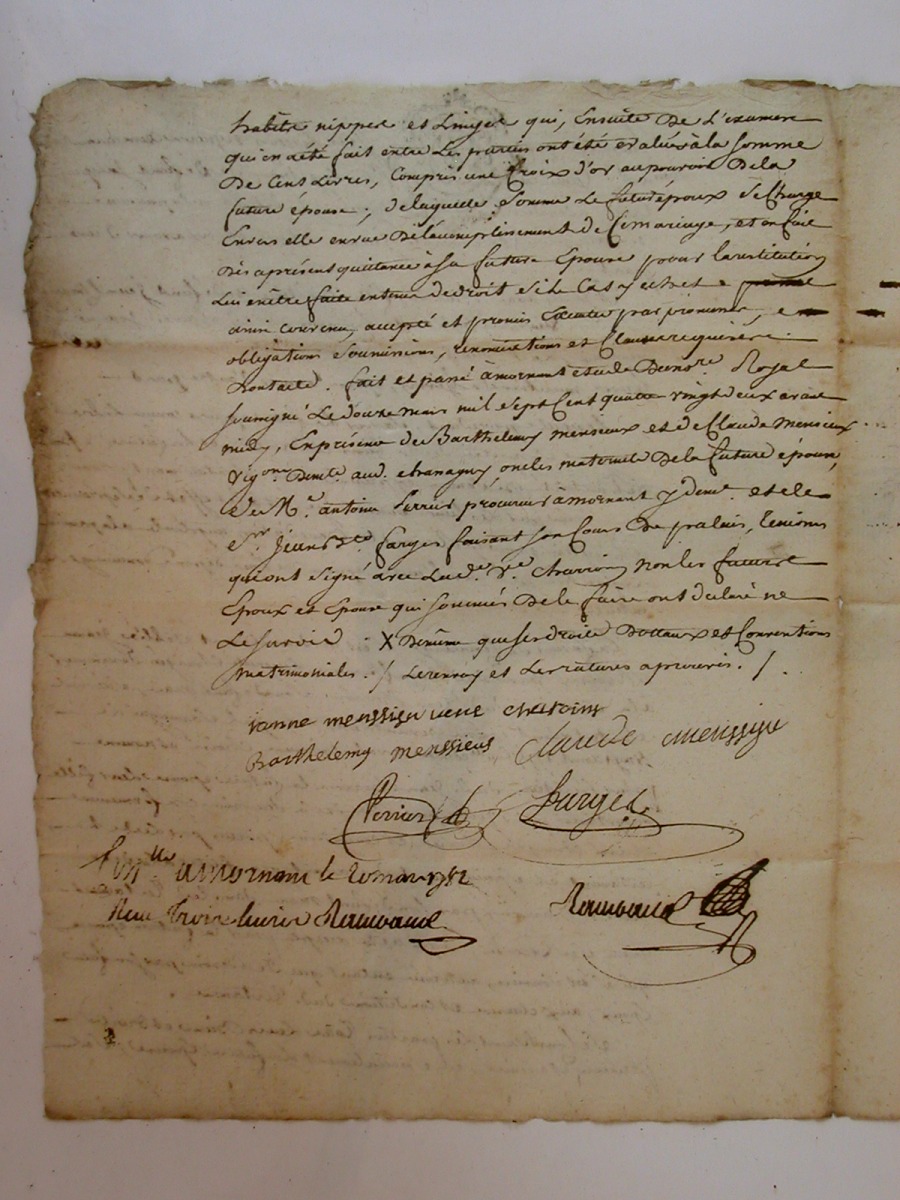 habits nippes et Linges qui, Ensuite De L'examen
qui en a été fait entre Les parties ont été evalués à la Somme
De Cent Livres, Compris une Croix d'or au pouvoir De la
future épouse ; de laquelle Somme Le futur époux Se Charge
Envers elle en vue De l'acomplissement de Ce mariage, et en fait
Dès aprésent quittance à Sa future Epouse pour la restitution
Lui en être faite en tems de droit Si le Cas y echet
ainsi convenu, accepté et promis Executer par promesses,
obligations Soumissions, renonciations et Clauses requises.
fait et passé à mornant etude Du no.re Royal
soussigné Le douze mars mil Sept Cent quatre vingt deux avant
midy, En présence de Barthelemy mensieux et de Claude Mensieux
Vig.ons Dem.ts oncles maternels De la future épouse,
De M.e antoine Perrier procureur à mornant y dem.t et de
S.r Jean farges faisant Son Cours de palais, temoins
qui ont signé avec La d.e V.e Charvin non les futurs
Epoux et Epouse qui Sommés De le faire ont déclaré ne
Le Savoir . X De même que Ses droits Dottaux et Conventions
matrimoniales. / Le renvoy et Les ratures aprouvés. /.
janne menssieu veuve
Barthelemy menssieus Claude menssieu
Perrier farges
a mornant le 20 mars 1782